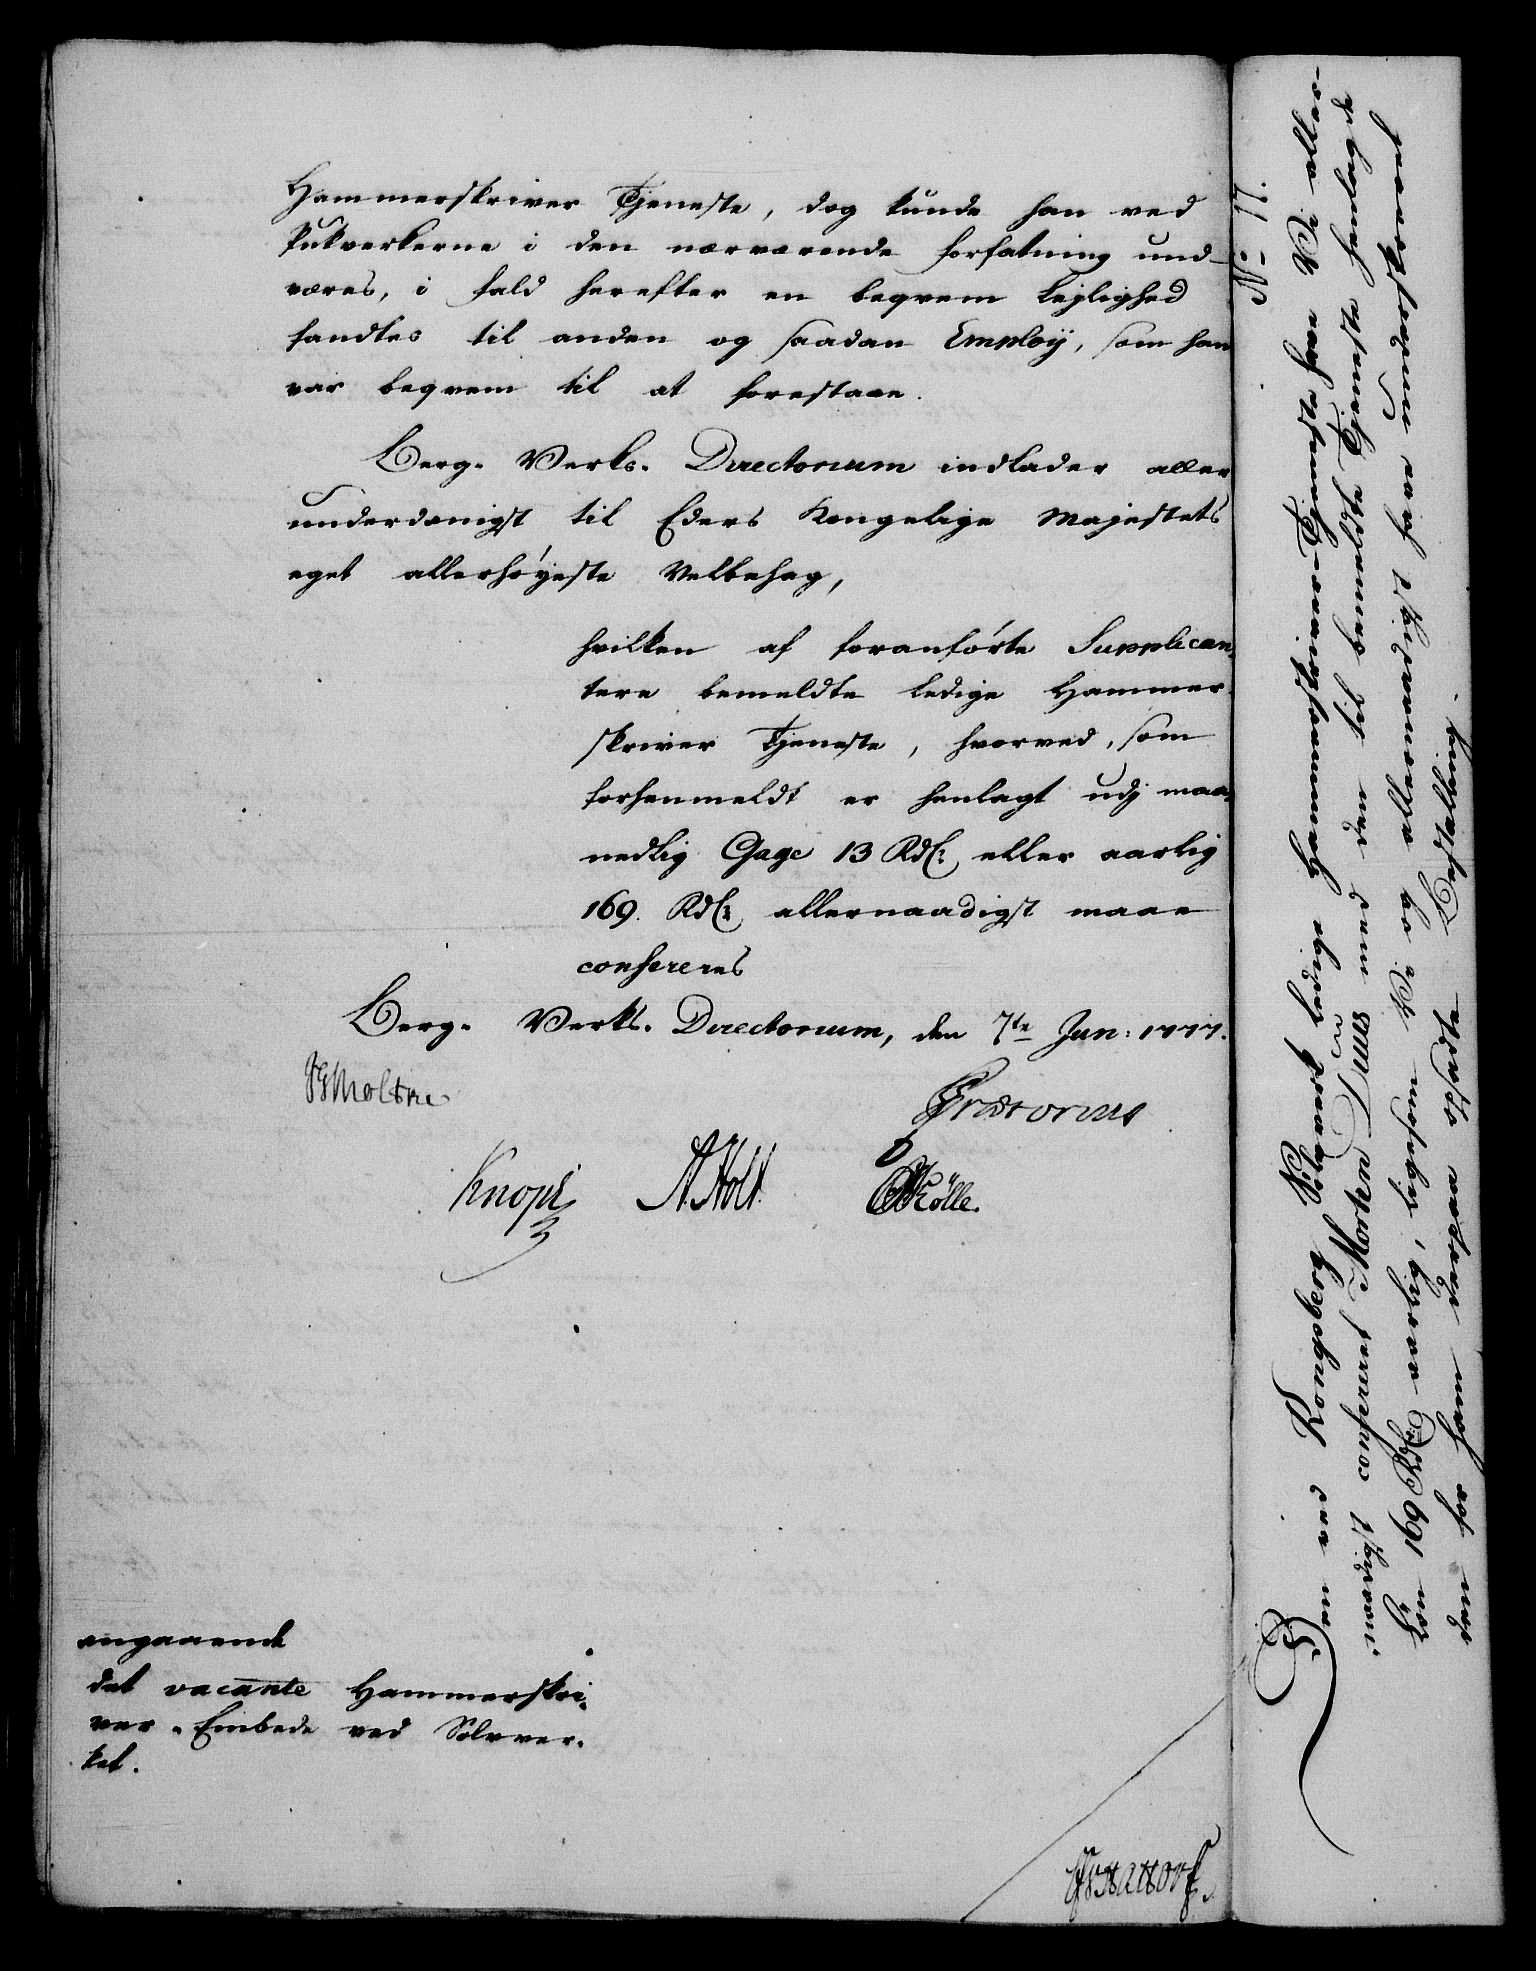 Hammerskriver Tjeneste, dog kunde han ved
Pukverkerne i den nærværende forfatning und-
væres, i fald herefter en beqvem Lejlighed
fandtes til anden og saadan Employ, som han
var beqvem til at forestaae.
Berg- Verks- Directorium indlader aller
underdanigst til Eders Kongelige Majestets
eget allerhøyeste Velbehag,
hvilken af foranførte Supplican-
tere bemeldte ledige Hammer-
skriver Tjeneste, hvorved, som
forhenmeldt er henlagt udj maa-
nedlig Gage 13 Rdlr, eller aarlig
169. Rdlr, allernaadigst maae
confereres
Berg- Verks- Directorium, den 7te Jan: 1777.
Moltke
Prætorius
Knoph A. Holt. Rölle.
angaaende
det vacante Hammerskri-
ver-Embede ved Sølvver-
ket.
No 17.
Den ved Kongsberg Sölvverk ledige Hammerskriver-Tjeneste have Vi aller-
naadigst confereret Morten Duus med den til bemeldte Tjeneste henlagde
Lön 169 Rdlr aarlig, ligesom Vi og allernaadigst have underskrevet
den for ham derpaa opsadte Bestalling.